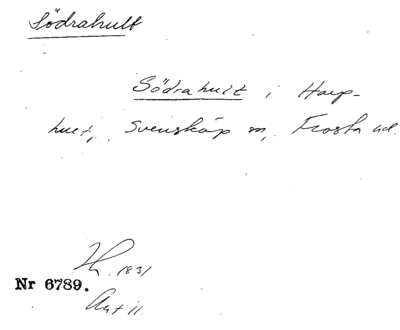 Södrahult
Södrahult i Harp-
hult, Svensköp sn, Frosta hd.
Th. 1831
Nr 6789.
Avt 11.